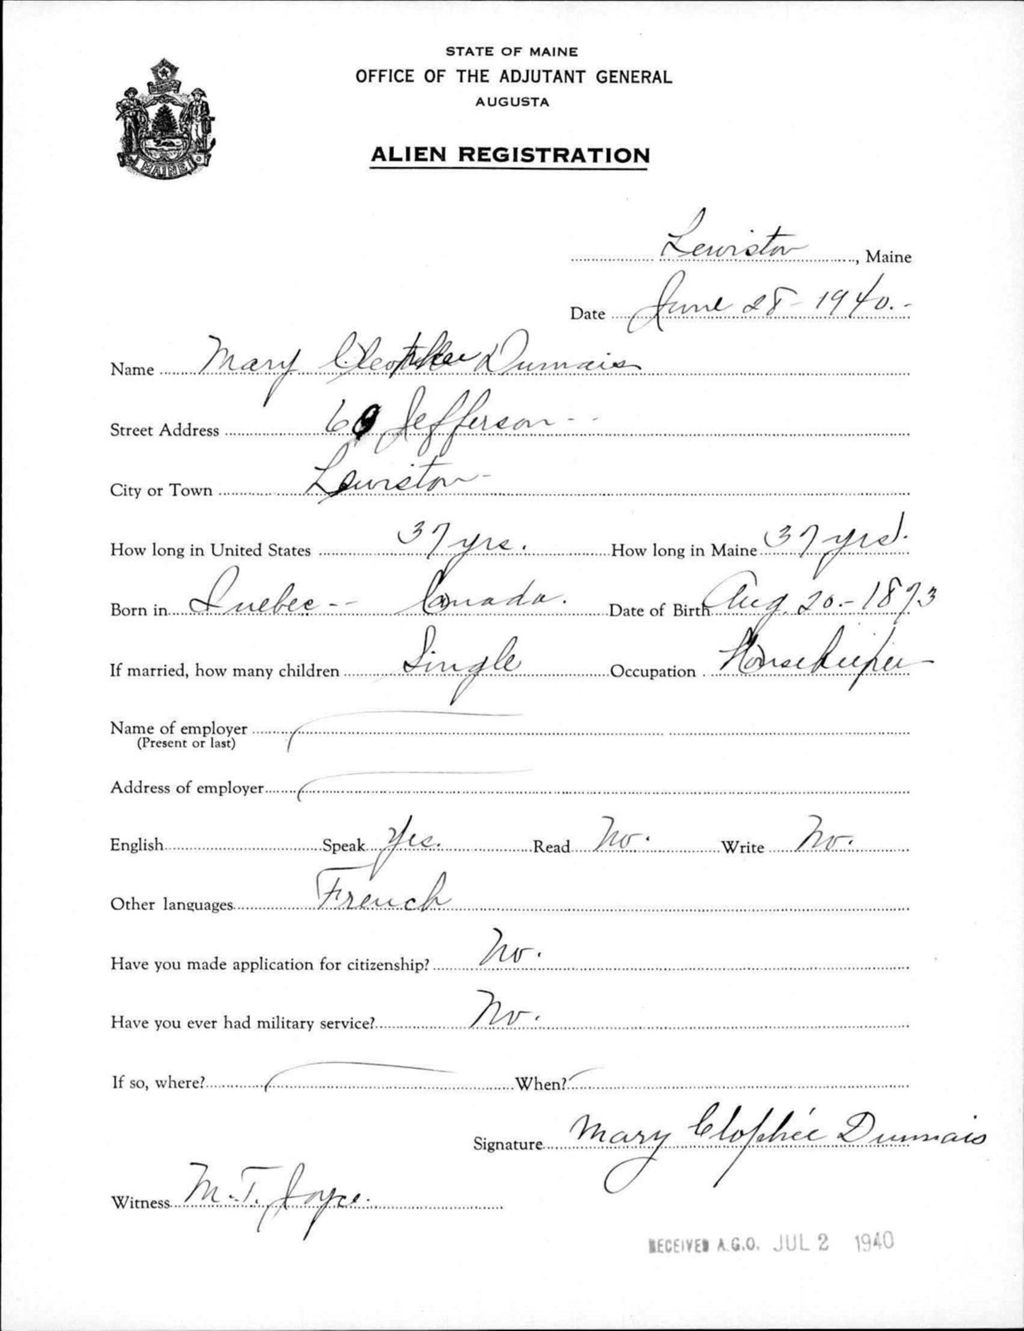 STATE OF MAINE
OFFICE OF THE ADJUTANT GENERAL
AUGUSTA
MAINE
ALIEN REGISTRATION
Lewiston, Maine
Date June 28 - 1940.-
Name Mary Dumais
Street Address 69 Jefferson -
City or Town Lewiston -
How long in United States 37 yrs. How long in Maine 37 yrs.
Born in Quebec -- Canada. Date of Birth Aug. 20.- 1873
If married, how many children Single Occupation Housekeeper
Name of employer
(Present or last)
Address of employer
English Speak Yes. Read No. Write No.
Other languages French
Have you made application for citizenship? No.
Have you ever had military service? No.
If so, where? When?
Signature Mary Clophée Dumais
Witness M. T. Joyce.
RECEIVED A.G.O. JUL 2 1940